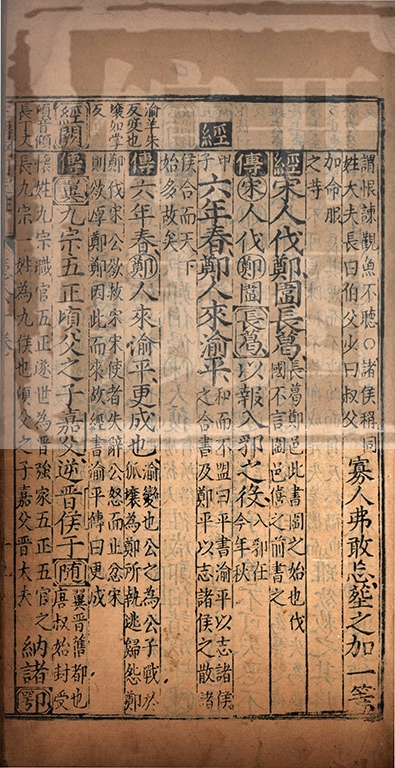 謂恨諫觀魚不聽○諸侯稱同
姓大夫長曰伯父少曰叔父
寡人弗敢忘葬之加一等
加命服
之等
經宋人伐鄭圍長葛
長葛鄭邑此書圍之始也伐
國不言圍邑
之前書之
傳宋人伐鄭圍長葛以報入郛之役
入郛在
今年秋
經
甲
子
六年春鄭人來渝平
和而不盟曰平書渝平以志諸侯
之合書及鄭平以志諸侯之散諸
侯合而天下
始多故矣
渝羊朱
反變也
壤如掌
反
傳六年春鄭人來渝平更成也
渝變也公之為公子戰於
狐壤為鄭所執逃歸怨鄭
鄭伐宋公欲救宋宋使者失辭公怒而止忿宋
則欲厚鄭鄭因此而來故經書渝平傳曰更成
經闕
傳翼九宗五正頃父之子嘉父逆晉侯于隨
翼晉舊都也
唐叔始封受
納諸鄂
頃音傾
長丁丈
懷姓九宗職官五正遂世為晉強家五正五官之
長九宗一姓為九族也頃父之子嘉父晉大夫